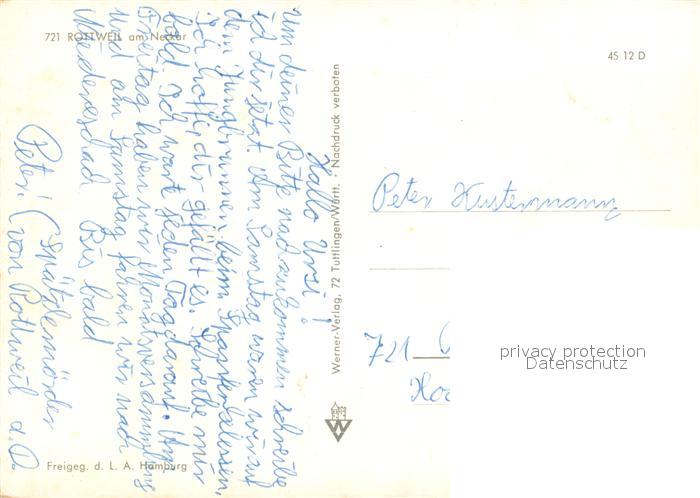 721 ROTTWEIL am Neckar
45 12 D
Hallo Ursi!
Um deiner Bitte nachzukommen schreibe
ich dir jetzt. Am Samstag waren wir auf
dem Jungbrunnen beim
Ich hoffe dir gefällt es. Schreibe mir
bald. Ich warte jeden Tag darauf. Am
Freitag haben wir Monatsversammlung
und am Samstag fahren wir nach
Niedereschach. Bis bald
Peter! (Spätzlemörder
von Rottweil a.
Werner-Verlag, 72 Tuttlingen/Württ. · Nachdruck verboten
Peter Hustermann
721
privacy protection
Datenschutz
W
Freigeg. d. L. A. Hamburg